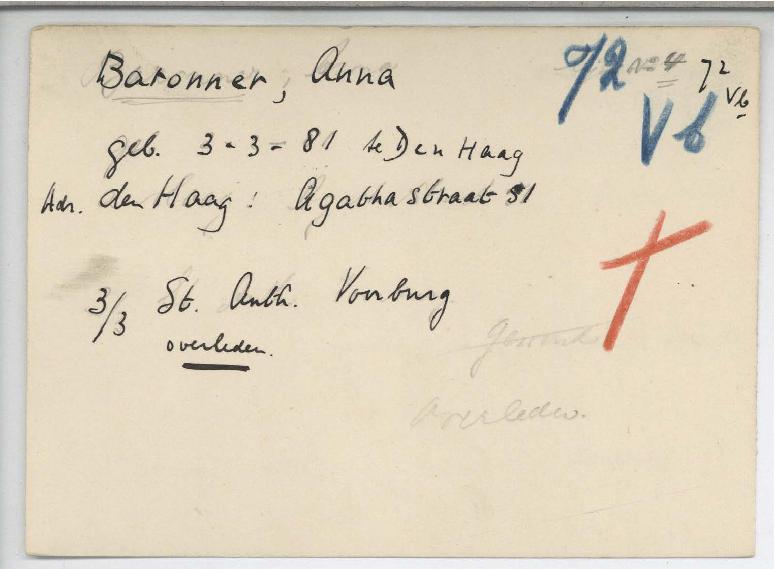 Baronner, Anna
72 No 4 72
Vb Vb
geb. 3-3-81 te Den Haag
Adr. den Haag: Agathastraat 31
3/3 St. Anth. Voorburg
overleden.
Overleden.